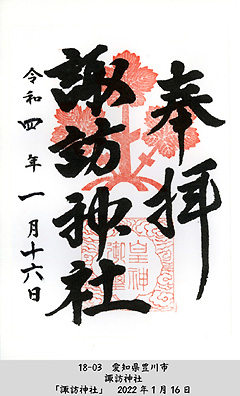 奉拝
諏訪神社
令和四年一月十六日
18-03 愛知県豊川市
諏訪神社
「諏訪神社」 2022年1月16日